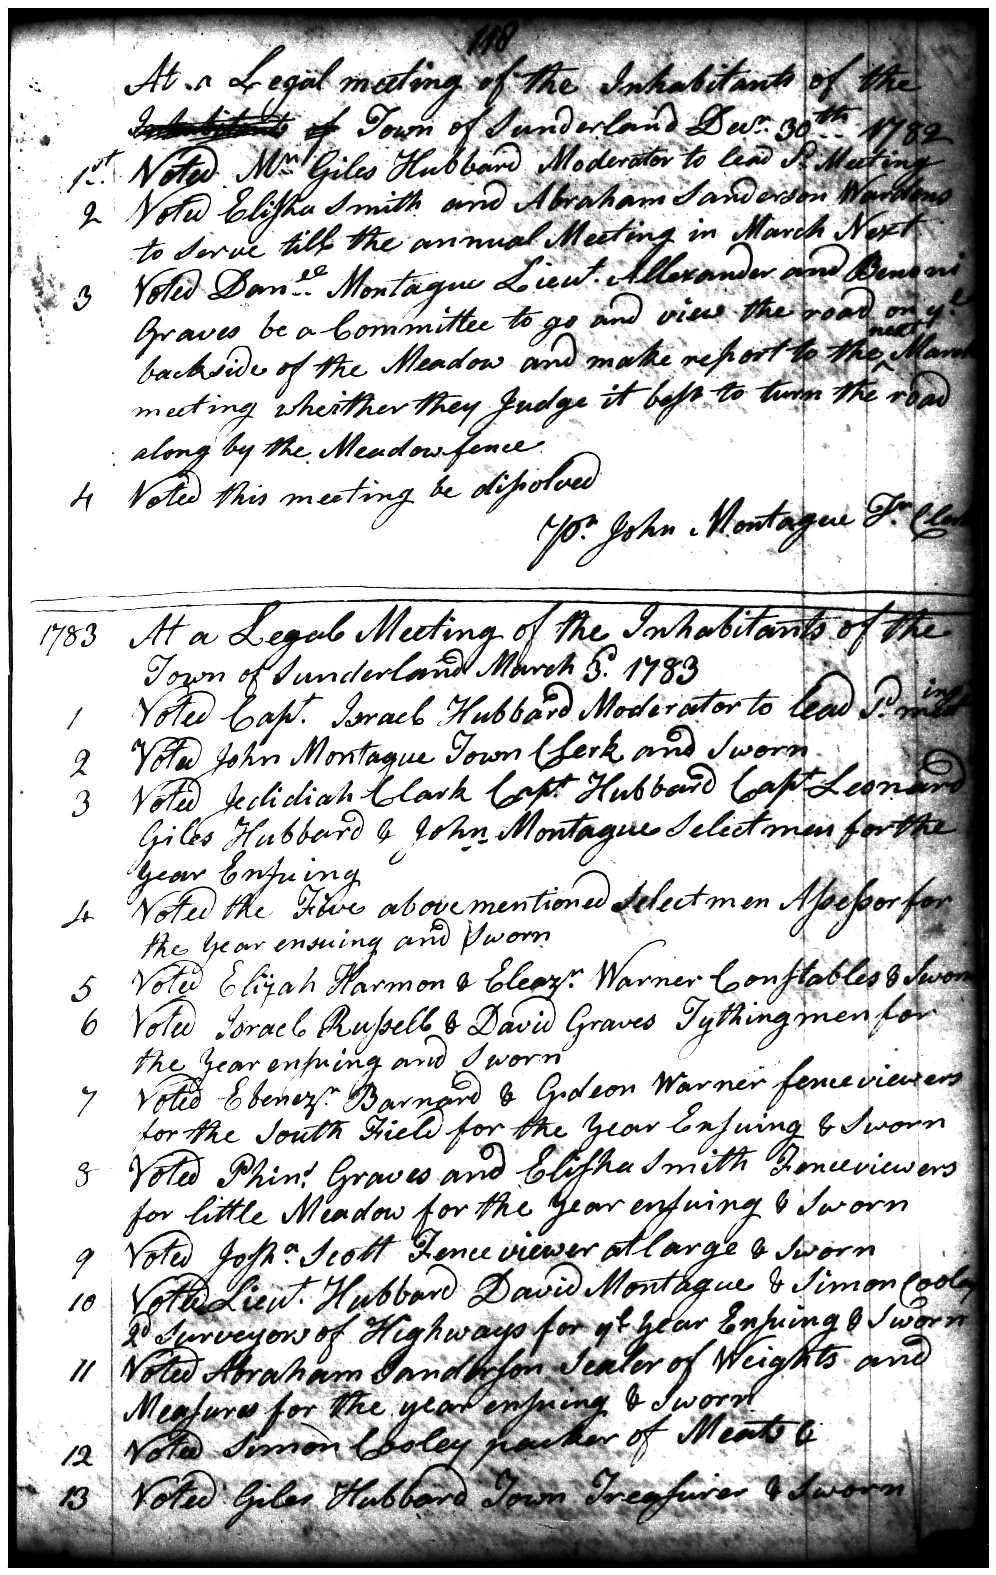 118
At a Legal meeting of the Inhabitants of the
Inhabitants of Town of Sunderland Decr. 30th 1782
1st. Voted Mr Giles Hubbard Moderator to lead Sd Meeting
2 Voted Elisha Smith and Abraham Sanderson Wardens
to serve till the annual Meeting in March Next
3 Voted Danll Montague Lieut. Allexander and Benoni
Graves be a Committee to go and view the road on ye
backside of the Meadow and make report to the next March
meeting wheither they Judge it best to turn the road
along by the Meadow fence
4 Voted this meeting be dissolved
Pr. John Montague Tn. Clerk
1783 At a Legal Meeting of the Inhabitants of the
Town of Sunderland March 3d. 1783
1 Voted Capt. Israel Hubbard Moderator to lead Sd meeting
2 Voted John Montague Town Clerk and Sworn
3 Voted Jedidiah Clark Capt. Hubbard Capt Leonard
Giles Hubbard & John Montague Selectmen for the
year Ensuing
4 Voted the Five abovementioned Selectmen Assessor for
the year ensuing and Sworn
5 Voted Elijah Harmon & Eleazr. Warner Constables & Sworn
6 Voted Israel Russell & David Graves Tythingmen for
the year ensuing and Sworn
7 Voted Ebenezr. Barnard & Gideon Warner fenceviewers
for the South Field for the year Ensuing & Sworn
8 Voted Phins. Graves and Elisha Smith Fenceviewers
for little Meadow for the year ensuing & Sworn
9 Voted Josha. Scott Fenceviewer at large & Sworn
10 Voted Lieut. Hubbard David Montague & Simon Cooley
2d Surveyors of Highways for ye year Ensuing & Sworn
11 Voted Abraham Sanderson Sealer of Weights and
Measures for the year ensuing & Sworn
12 Voted Simon Cooley packer of Meats &
13 Voted Giles Hubbard Town Treasurer & Sworn